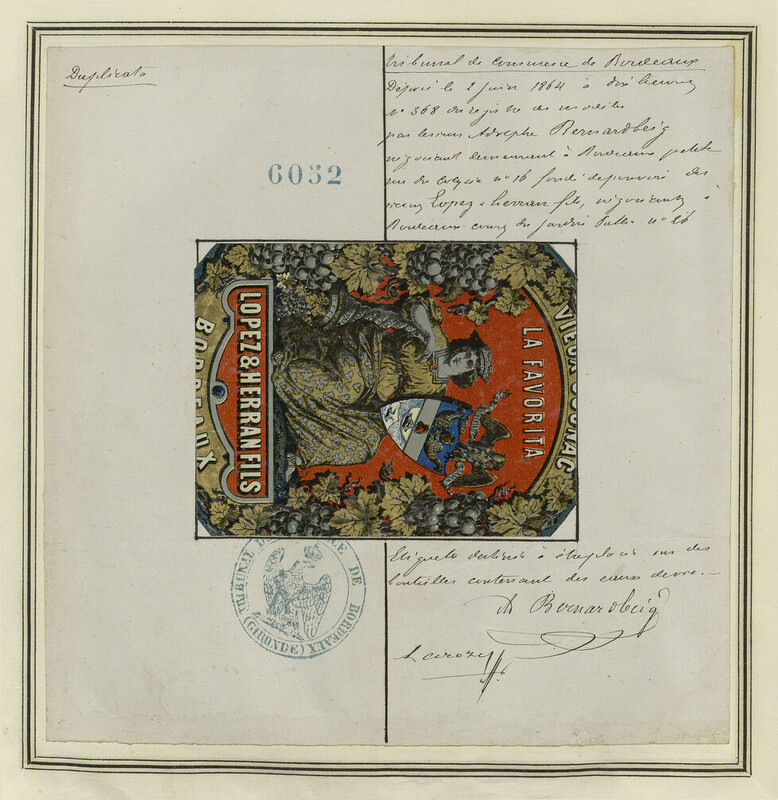 Duplicata
6052
Tribunal de Commerce de Bordeaux
Déposé le 2 Juin 1864 à dix heures
n° 368 du registre des modèles
par le sieur Adolphe Bernardbeig
négociant demeurant à Bordeaux petite
rue du Colysée n° 16 fondé de pouvoirs des
sieurs Lopez & herran fils, négociants à
Bordeaux cours du Jardin Public n° 26
VIEUX COGNAC
LA FAVORITA
LOPEZ & HERRAN FILS
BORDEAUX
Etiquette destinée à être placée sur des
bouteilles contenant des eaux de vie.
A Bernardbeig
TRIBUNAL DE COMMERCE DE BORDEAUX
(GIRONDE)